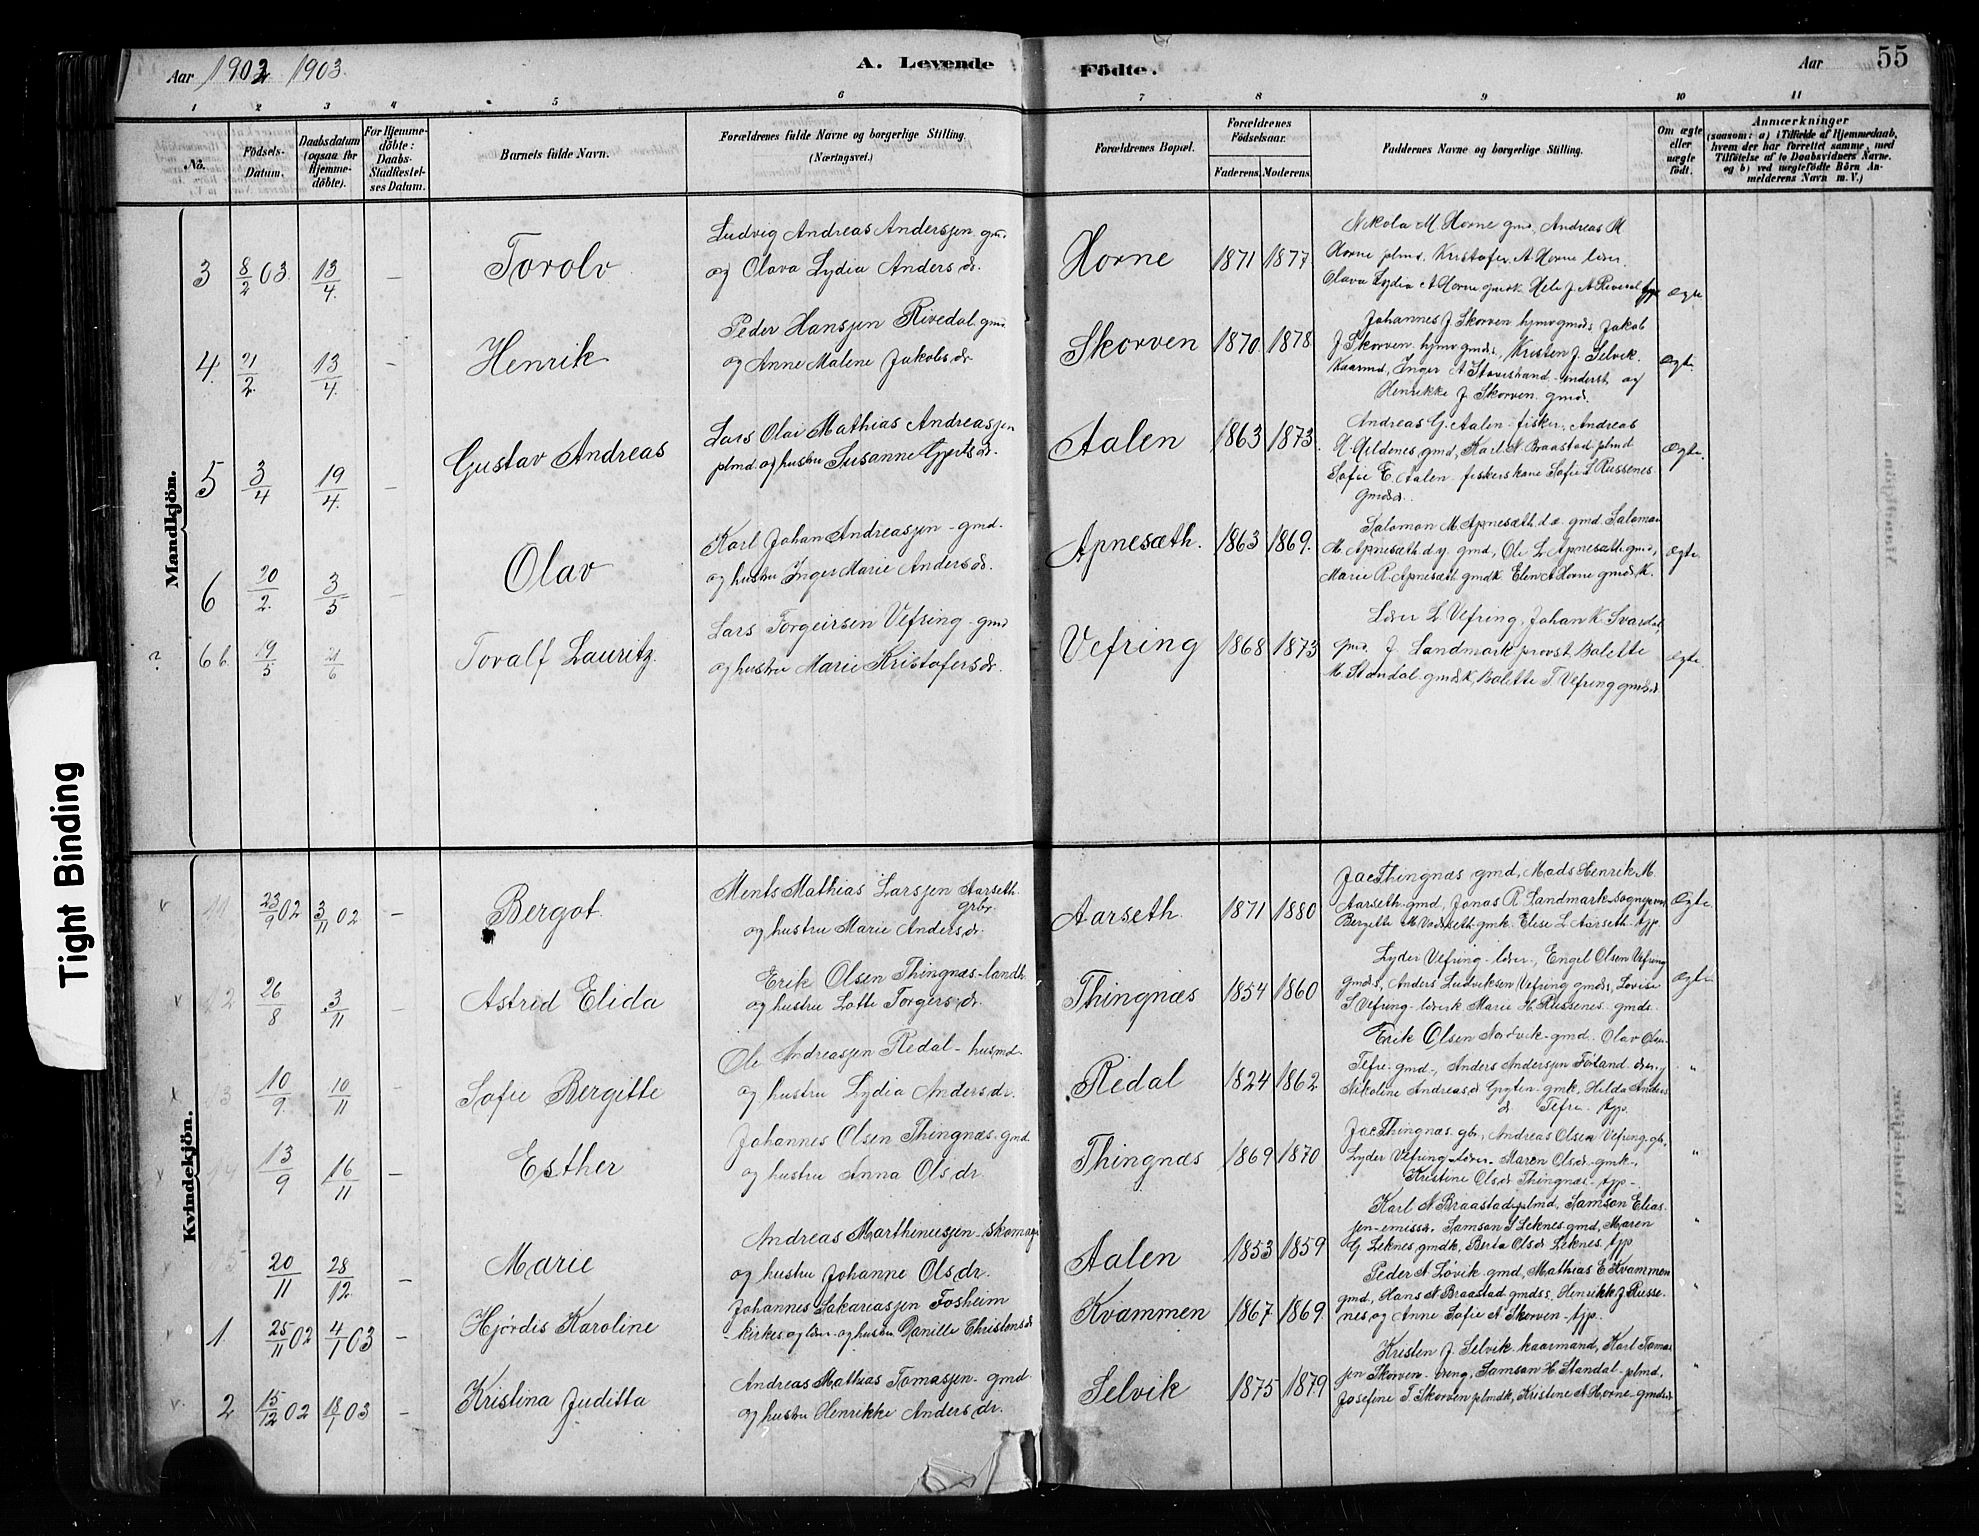 Aar 1902 1903.
A. Levende
Födte.
Aar
55
1 2 3 4 5 6 7 8 9 10 11
No.
Födsels-Datum.
Daabsdatum (ogsaa for Hjemme-döbte).
For Hjemme-döbte: Daabs-Stadfæstel-ses Datum.
Barnets fulde Navn.
Forældrenes fulde Navne og borgerlige Stilling.
(Næringsvei.)
Forældrenes Bopæl.
Forældrenes Födselsaar.
Faderens. Moderens.
Faddernes Navne og borgerlige Stilling.
Om ægte eller uægte födt.
Anmærkninger
(saasom: a) i Tilfælde af Hjemmedaab,
hvem der har forrettet samme, med
Tilföielse af to Daabsvidners Navne.
og b) ved uægtefödte Börn An-
melderens Navn m. V.)
Mandkjön.
3 8/2 03. 13/4. — Torolv
Ludvig Andreas Andersjen gm.
og Olava Lydia Anders dr.
Horne 1871 1877
Nikola M. Horne gmd, Andreas M
Horne plmd, Kristofer A Horne løser
Olava Lydia A Horne
ægte
4. 21/2. 13/4. — Henrik
Peder Hansjen Rivedal gmd.
og Anne Malene Jakobs dr
Skorven 1870 1878
Johannes J. Skorven hjmv gmds, Jakob
J Skorven hjmv gmds, Kristen J. Selvik
Kaarmd, Inger A Stavestrand inderst og
Henrikke J. Skorven gmd.
Ægte.
5 3/4 19/4. — Gustav Andreas
Lars Olai Mathias Andreasjen
plmd. og hustru Susanne Gjerts dr.
Aalen 1863 1873.
Andreas G. Aalen fisker, Andreas
A Hildenes gmd, Karl N Braastad plmd
Sofie E. Aalen fiskerskone Sofie L Russenes
gmdsd.
Ægte.
6 20/2. 3/5 — Olav
Karl Johan Andreasjen - gmd.
og hustru Inger Marie Anders dr.
Apnesæth. 1863 1869.
Salomon M. Apnesæth d.æ. gmd Salomon
M. Apnesæth d.y. gmd, Ole L Apnesæth gmd,
Marie R. Apnesæth gmdk. Elen A Horne gmds K.
Ægte
? 6 b. 19/5 21/6 Toralf Lauritz.
Lars Torgeirsen Vefring - gmd
og hustru Marie Kristofers dr.
Vefring 1868 1873
Løser L Vefring, Johan K Svardal,
gmd. J. Landmark provst Balette
M. Standal gmdsk, Balette T. Vefring gmdsd.
Ægte
Kvindekjön.
v 11 23/9 02 3/11 02 — Bergot.
Ments Mathias Larsjen Aarseth.
grbr.
og hustru Marie Anders dr.
Aarseth. 1871 1880
Jac Thingnæs gmd, Mads Henrik M.
Aarseth - gmd, Jonas R Landmark - sogneprest
Bergitte M Vadseth - gmk. Elise L Aarseth - tjp.
Ægte.
v 12 26/8 3/11 — Astrid Elida
Erik Olsen Thingnæs - landh.
og hustru Lotte Torgers dr.
Thingnæs 1854 1860
Lyder Vefring - løser, Engel Olsen Vefring
gmds, Anders Ludviksen Vefring gmds, Lovise
S Vefring - løserk Marie H. Russenes - gmds.
Ægte.
x 13 10/9. 10/11 — Sofie Bergitte
Ole Andreasjen Redal - husmd.
og hustru Lydia Anders dr.
Redal 1824 1862
Erik Olsen Nordvik - gmd. Olav Olsen
Tefre - gmd., Anders Andersjen Föland
Nikoline Andreasdr Gryten - gmk, Hilda Anders
dr Tefre - tjp.
"
v 14 13/9 16/11 — Esther
Johannes Olsen Thingnæs. gmd.
og hustru Anna Ols dr.
Thingnæs 1869 1870
Jac Thingnæs gb, Andreas Olsen Vefring. gb,
Lyder Vefring - løser. Maren Olsdr - gmk.,
Kristine Olsdr Thingnæs - tjp.
"
15 20/11 28/12. — Marie
Andreas Marthinusjen - skomager
og hustru Johanne Ols dr.
Aalen 1853 1859
Karl N Braastad plmd, Samson Elias-
jen - emissær, Samson S Leknes gmd, Maren
G. Leknes gmdk, Berta Olsdr Leknes. tjp
"
v 1. 25/11 02 4/1 03 — Hjørdis Karoline
Johannes Sakariasjen Fosheim
- kirkes. og løser - og hustru Danille Christensdr
Kvammen 1867 1869.
Peder A. Løvik - gmd, Mathias E Kvammen
gmd, Hans N Braastad gmds, Henrik J Russe-
nes, og Anne Sofie A Skorven - tjp.
"
v. 2 15/12 02 18/1 03 — Kristina Juditta
Andreas Mathias Tomasjen - gmd
og hustru Henrikke Anders dr.
Selvik 1875 1879
Kristen J. Selvik - kaarmand, Karl Tomas
jen Skorven - ung, Samson H. Standal - plmd,
Josefine T Skorven plmdk, Kristine A Horne - gmds.
"
Tight Binding